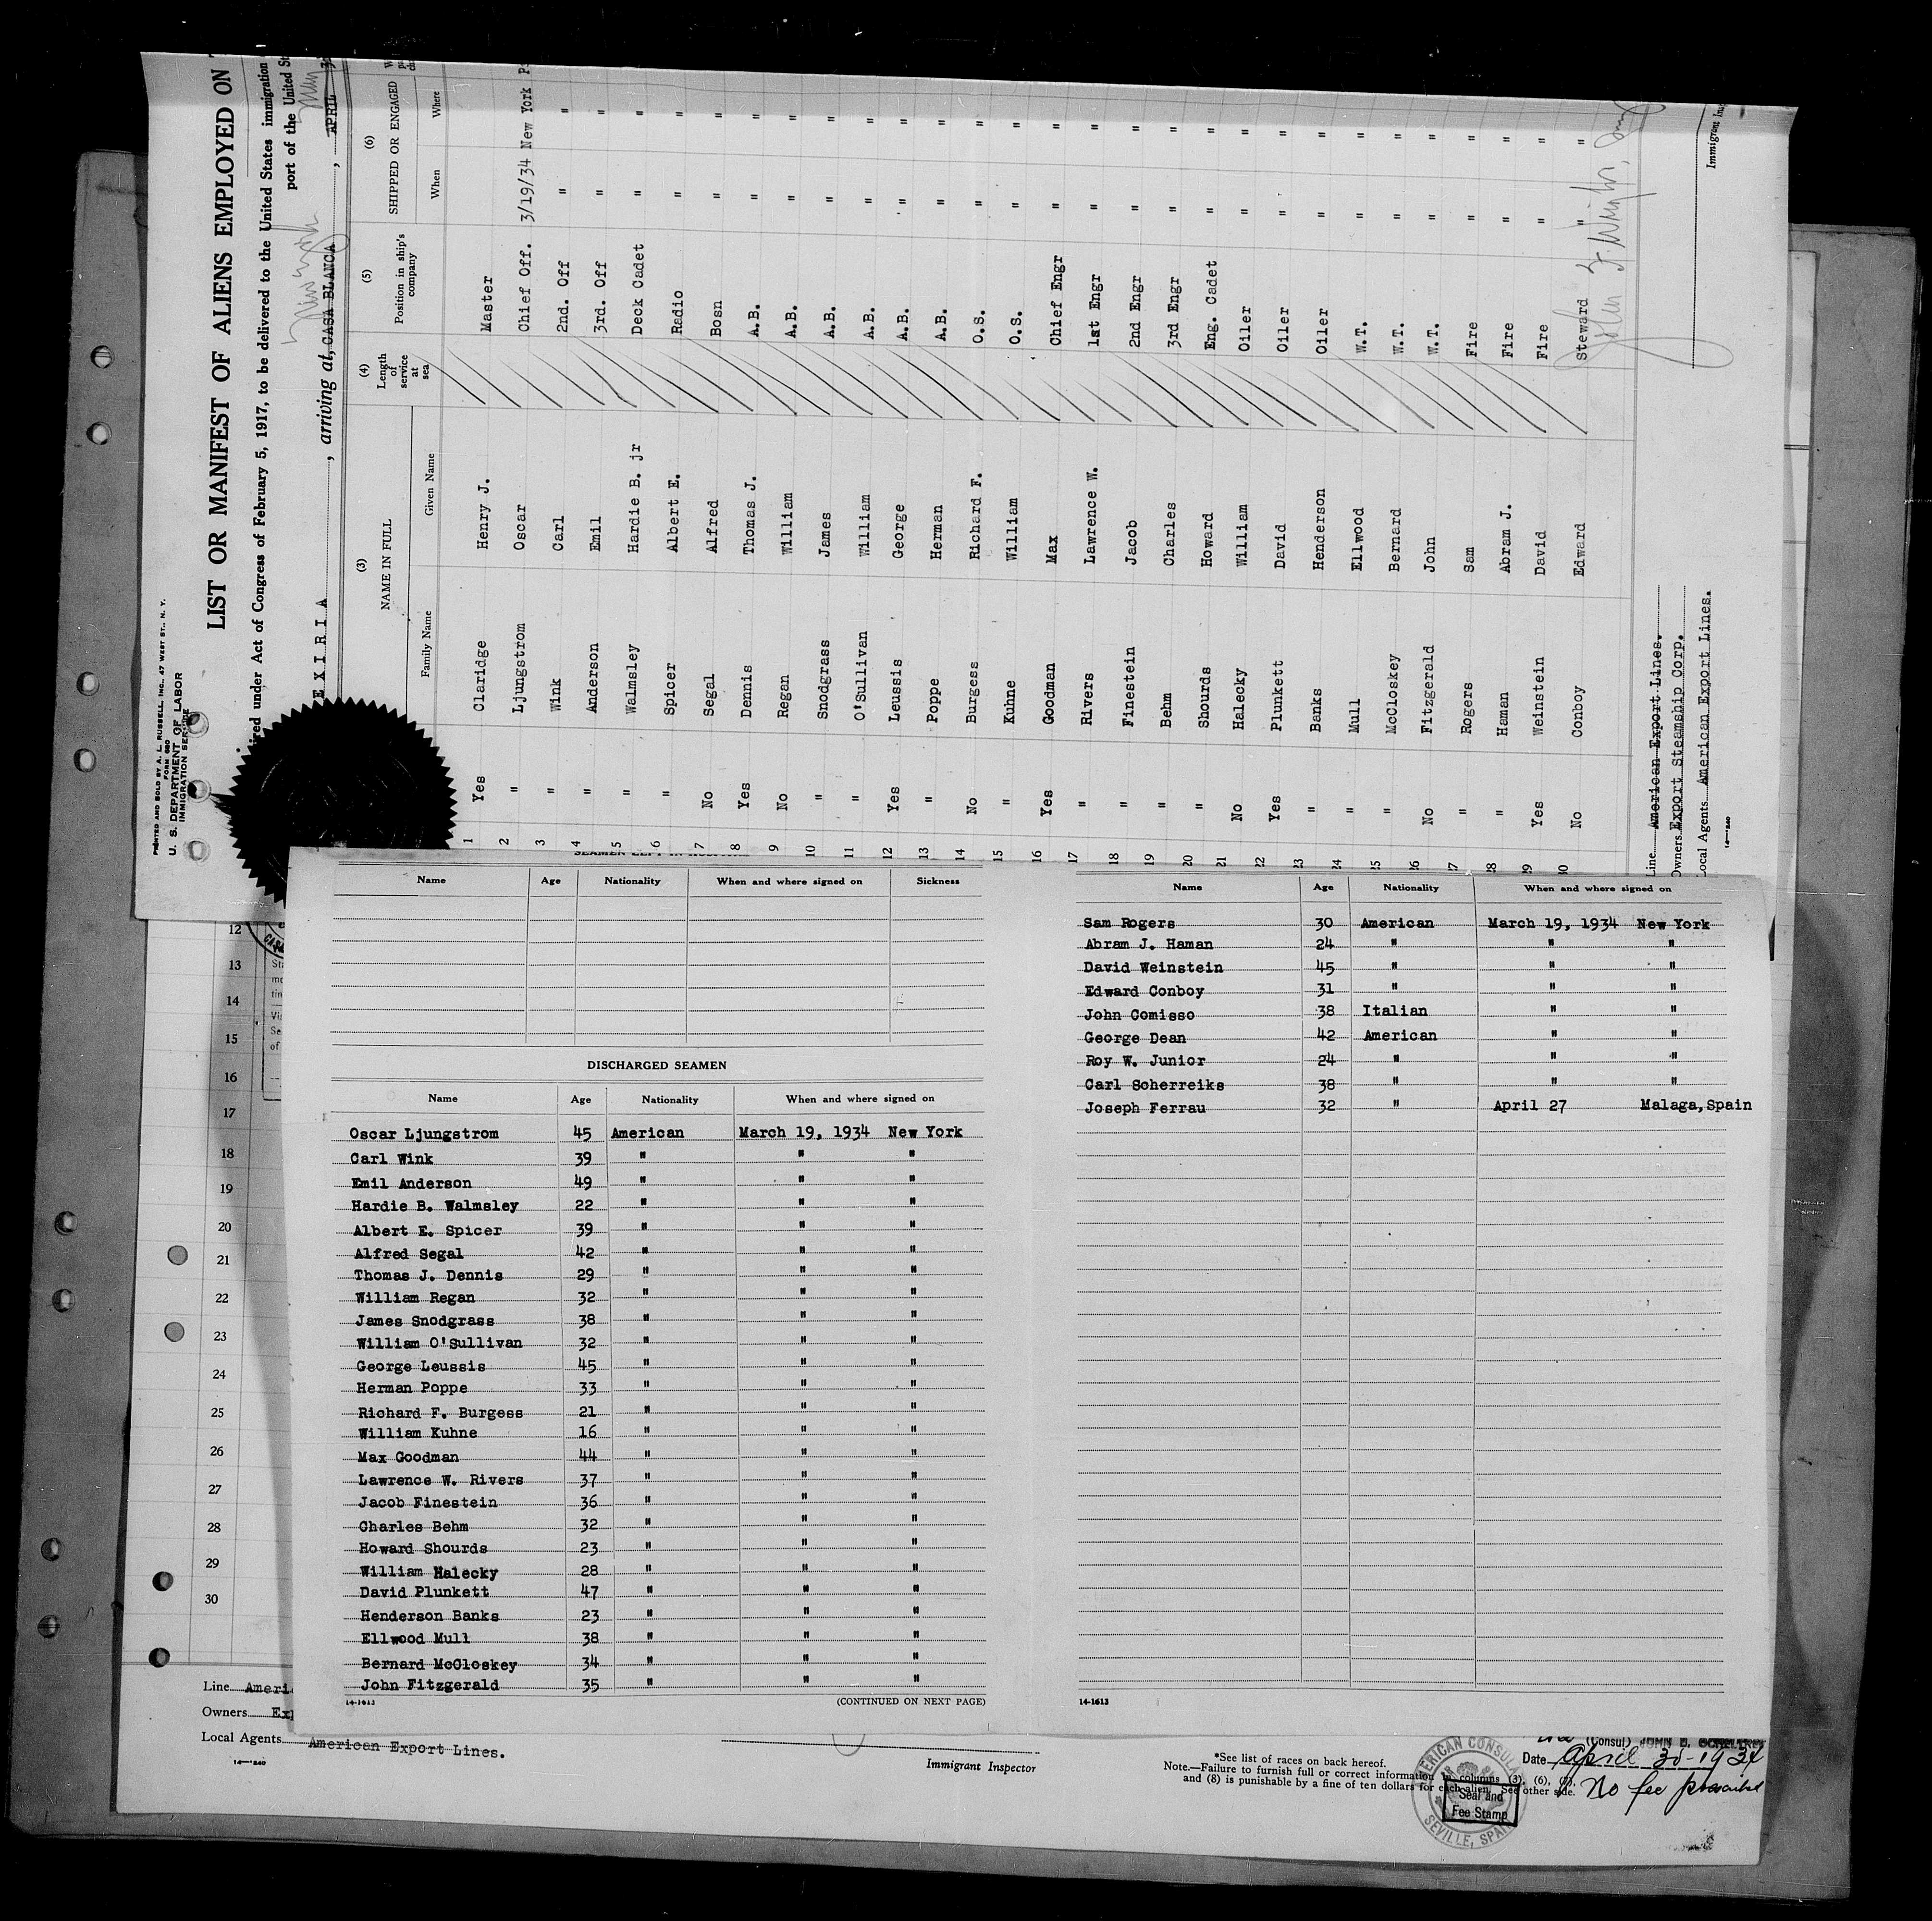 PRINTED AND SOLD BY A. L. RUSSELL, INC., 47 WEST ST., N. Y.
FORM 680
U. S. DEPARTMENT OF LABOR
IMMIGRATION SERVICE
LIST OR MANIFEST OF ALIENS EMPLOYED ON
under Act of Congress of February 5, 1917, to be delivered to the United States immigration
port of the United St
New York
EXIRIA, arriving at, CASA BLANCA, APRIL
(3) NAME IN FULL (4) Length of service at sea (5) Position in ship's company (6) SHIPPED OR ENGAGED
Family Name Given Name When Where
1 Yes Claridge Henry J. Master
2 " Ljungstrom Oscar Chief Off. 3/19/34 New York
3 " Wink Carl 2nd. Off " "
4 " Anderson Emil 3rd. Off " "
5 " Walmsley Hardie B. jr Deck Cadet " "
6 " Spicer Albert E. Radio " "
7 No Segal Alfred Bosn " "
8 Yes Dennis Thomas J. A.B. " "
9 No Regan William A.B. " "
10 " Snodgrass James A.B. " "
11 " O'Sullivan William A.B. " "
12 Yes Leussis George A.B. " "
13 " Poppe Herman A.B. " "
14 No Burgess Richard F. O.S. " "
15 " Kuhne William O.S. " "
16 Yes Goodman Max Chief Engr " "
17 " Rivers Lawrence W. 1st Engr " "
18 " Finestein Jacob 2nd Engr " "
19 " Behm Charles 3rd Engr " "
20 " Shourds Howard Eng. Cadet " "
21 No Halecky William Oiler " "
22 Yes Plunkett David Oiler " "
23 " Banks Henderson Oiler " "
24 " Mull Ellwood W.T. " "
25 " McCloskey Bernard W.T. " "
26 No Fitzgerald John W.T. " "
27 " Rogers Sam Fire " "
28 " Haman Abram J. Fire " "
29 Yes Weinstein David Fire " "
30 No Conboy Edward Steward " "
Line American Export Lines.
Owners Export Steamship Corp.
Local Agents American Export Lines.
14—1240
Immigrant
Name Age Nationality When and where signed on Sickness
DISCHARGED SEAMEN
Name Age Nationality When and where signed on
Oscar Ljungstrom 45 American March 19, 1934 New York
Carl Wink 39 " " "
Emil Anderson 49 " " "
Hardie B. Walmsley 22 " " "
Albert E. Spicer 39 " " "
Alfred Segal 42 " " "
Thomas J. Dennis 29 " " "
William Regan 32 " " "
James Snodgrass 38 " " "
William O'Sullivan 32 " " "
George Leussis 45 " " "
Herman Poppe 33 " " "
Richard F. Burgess 21 " " "
William Kuhne 16 " " "
Max Goodman 44 " " "
Lawrence W. Rivers 37 " " "
Jacob Finestein 36 " " "
Charles Behm 32 " " "
Howard Shourds 23 " " "
William Halecky 28 " " "
David Plunkett 47 " " "
Henderson Banks 23 " " "
Ellwood Mull 38 " " "
Bernard McCloskey 34 " " "
John Fitzgerald 35 " " "
14-1613 (CONTINUED ON NEXT PAGE)
Name Age Nationality When and where signed on
Sam Rogers 30 American March 19, 1934 New York
Abram J. Haman 24 " " "
David Weinstein 45 " " "
Edward Conboy 31 " " "
John Comisso 38 Italian " "
George Dean 42 American " "
Roy W. Junior 24 " " "
Carl Scherreiks 38 " " "
Joseph Ferrau 32 " April 27 Malaga, Spain
14-1613
12
13
14
15
16
17
18
19
20
21
22
23
24
25
26
27
28
29
30
Line Ameri
Owners Exp
Local Agents American Export Lines.
14—1240
Immigrant Inspector
*See list of races on back hereof.
Note.—Failure to furnish full or correct information in columns (3), (6), (7),
and (8) is punishable by a fine of ten dollars for each alien. See other side.
(Consul)
Date April 30-1934
No fee prescribed
AMERICAN CONSULA
Seal and
Fee Stamp
SEVILLE, SPAIN